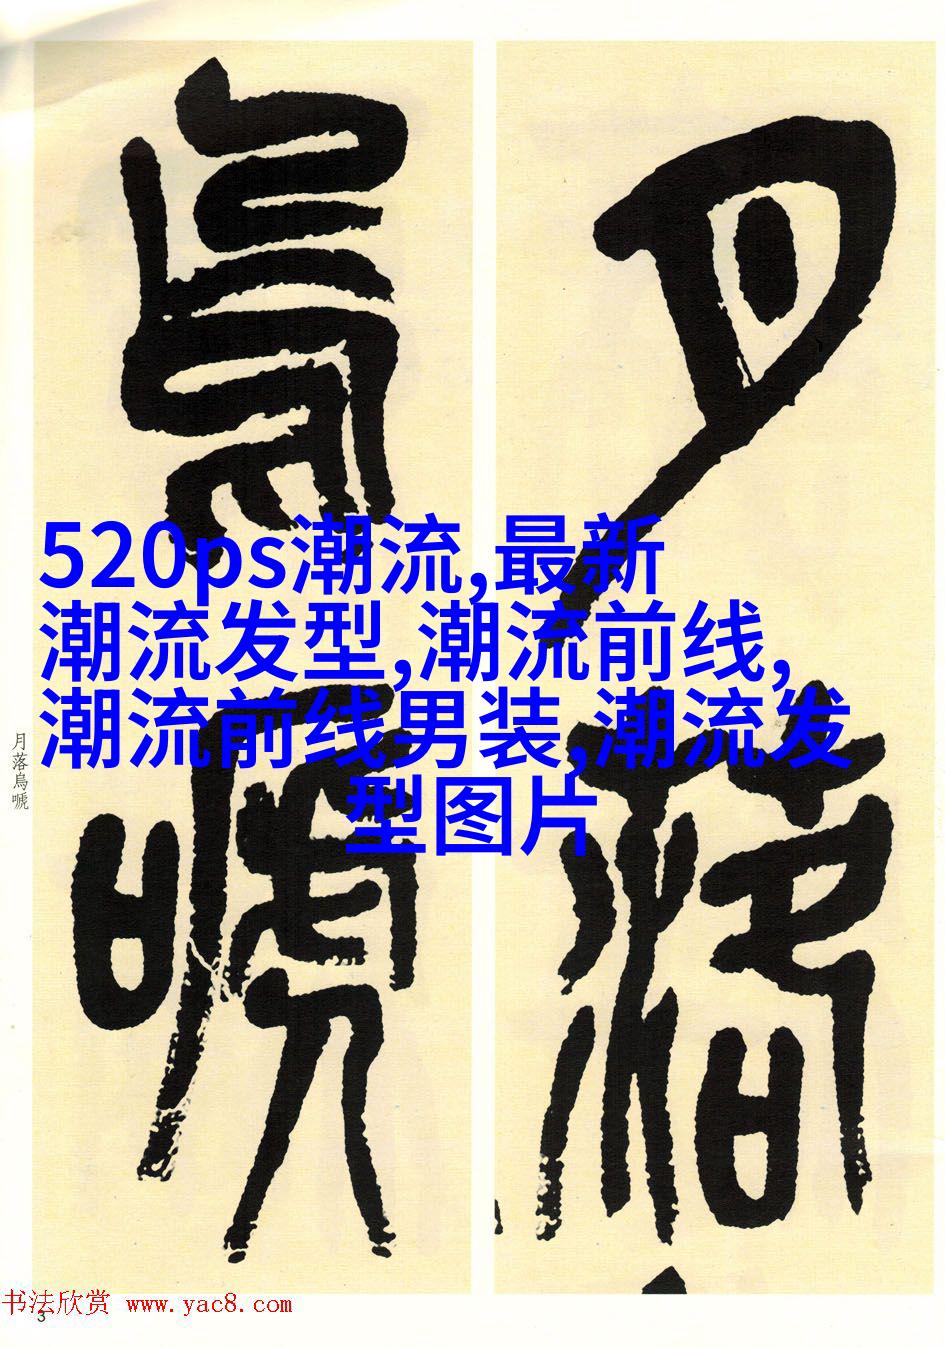 月落
烏嗁
520ps潮流,最新
潮流发型,潮流前线,
潮流前线男装,潮流发
型图片
月落烏嗁
书法欣赏 www.yac8.com
3